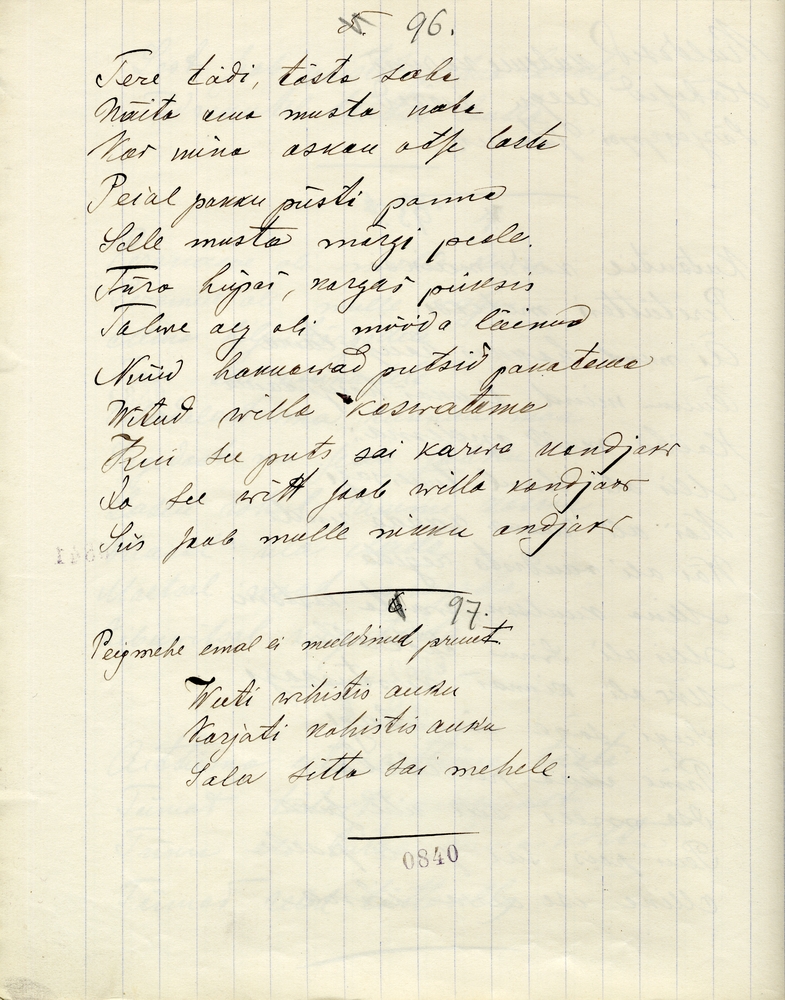 96.
Tere tädi, tõsta saba
Näita oma musta naba
Kas mina oskan otse lasta
Peial pakku püsti panna
Selle musta märgi peale.
Türa hüpas, kargas püksis
Talwe aeg oli mööda läinud
Nüüd hakkawad putsid pakatama
Witud willa kaswatama
Kui see puts sai karwa kandjaks
Ja see witt saab willa kandjaks
Siis saab mulle nikku andjaks
97.
Peigmehe emal ei meeldinud pruut.
Weeti wihistis auku
Karjati kahistis auku
Sala sitta sai mehele.
0840